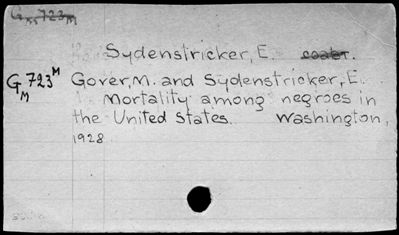 G M 723 M
Sydenstricker, E. coaut.
G M 723 M Gover, M. and Sydenstricker, E.
Mortality among negroes in
the United States. Washington,
1928